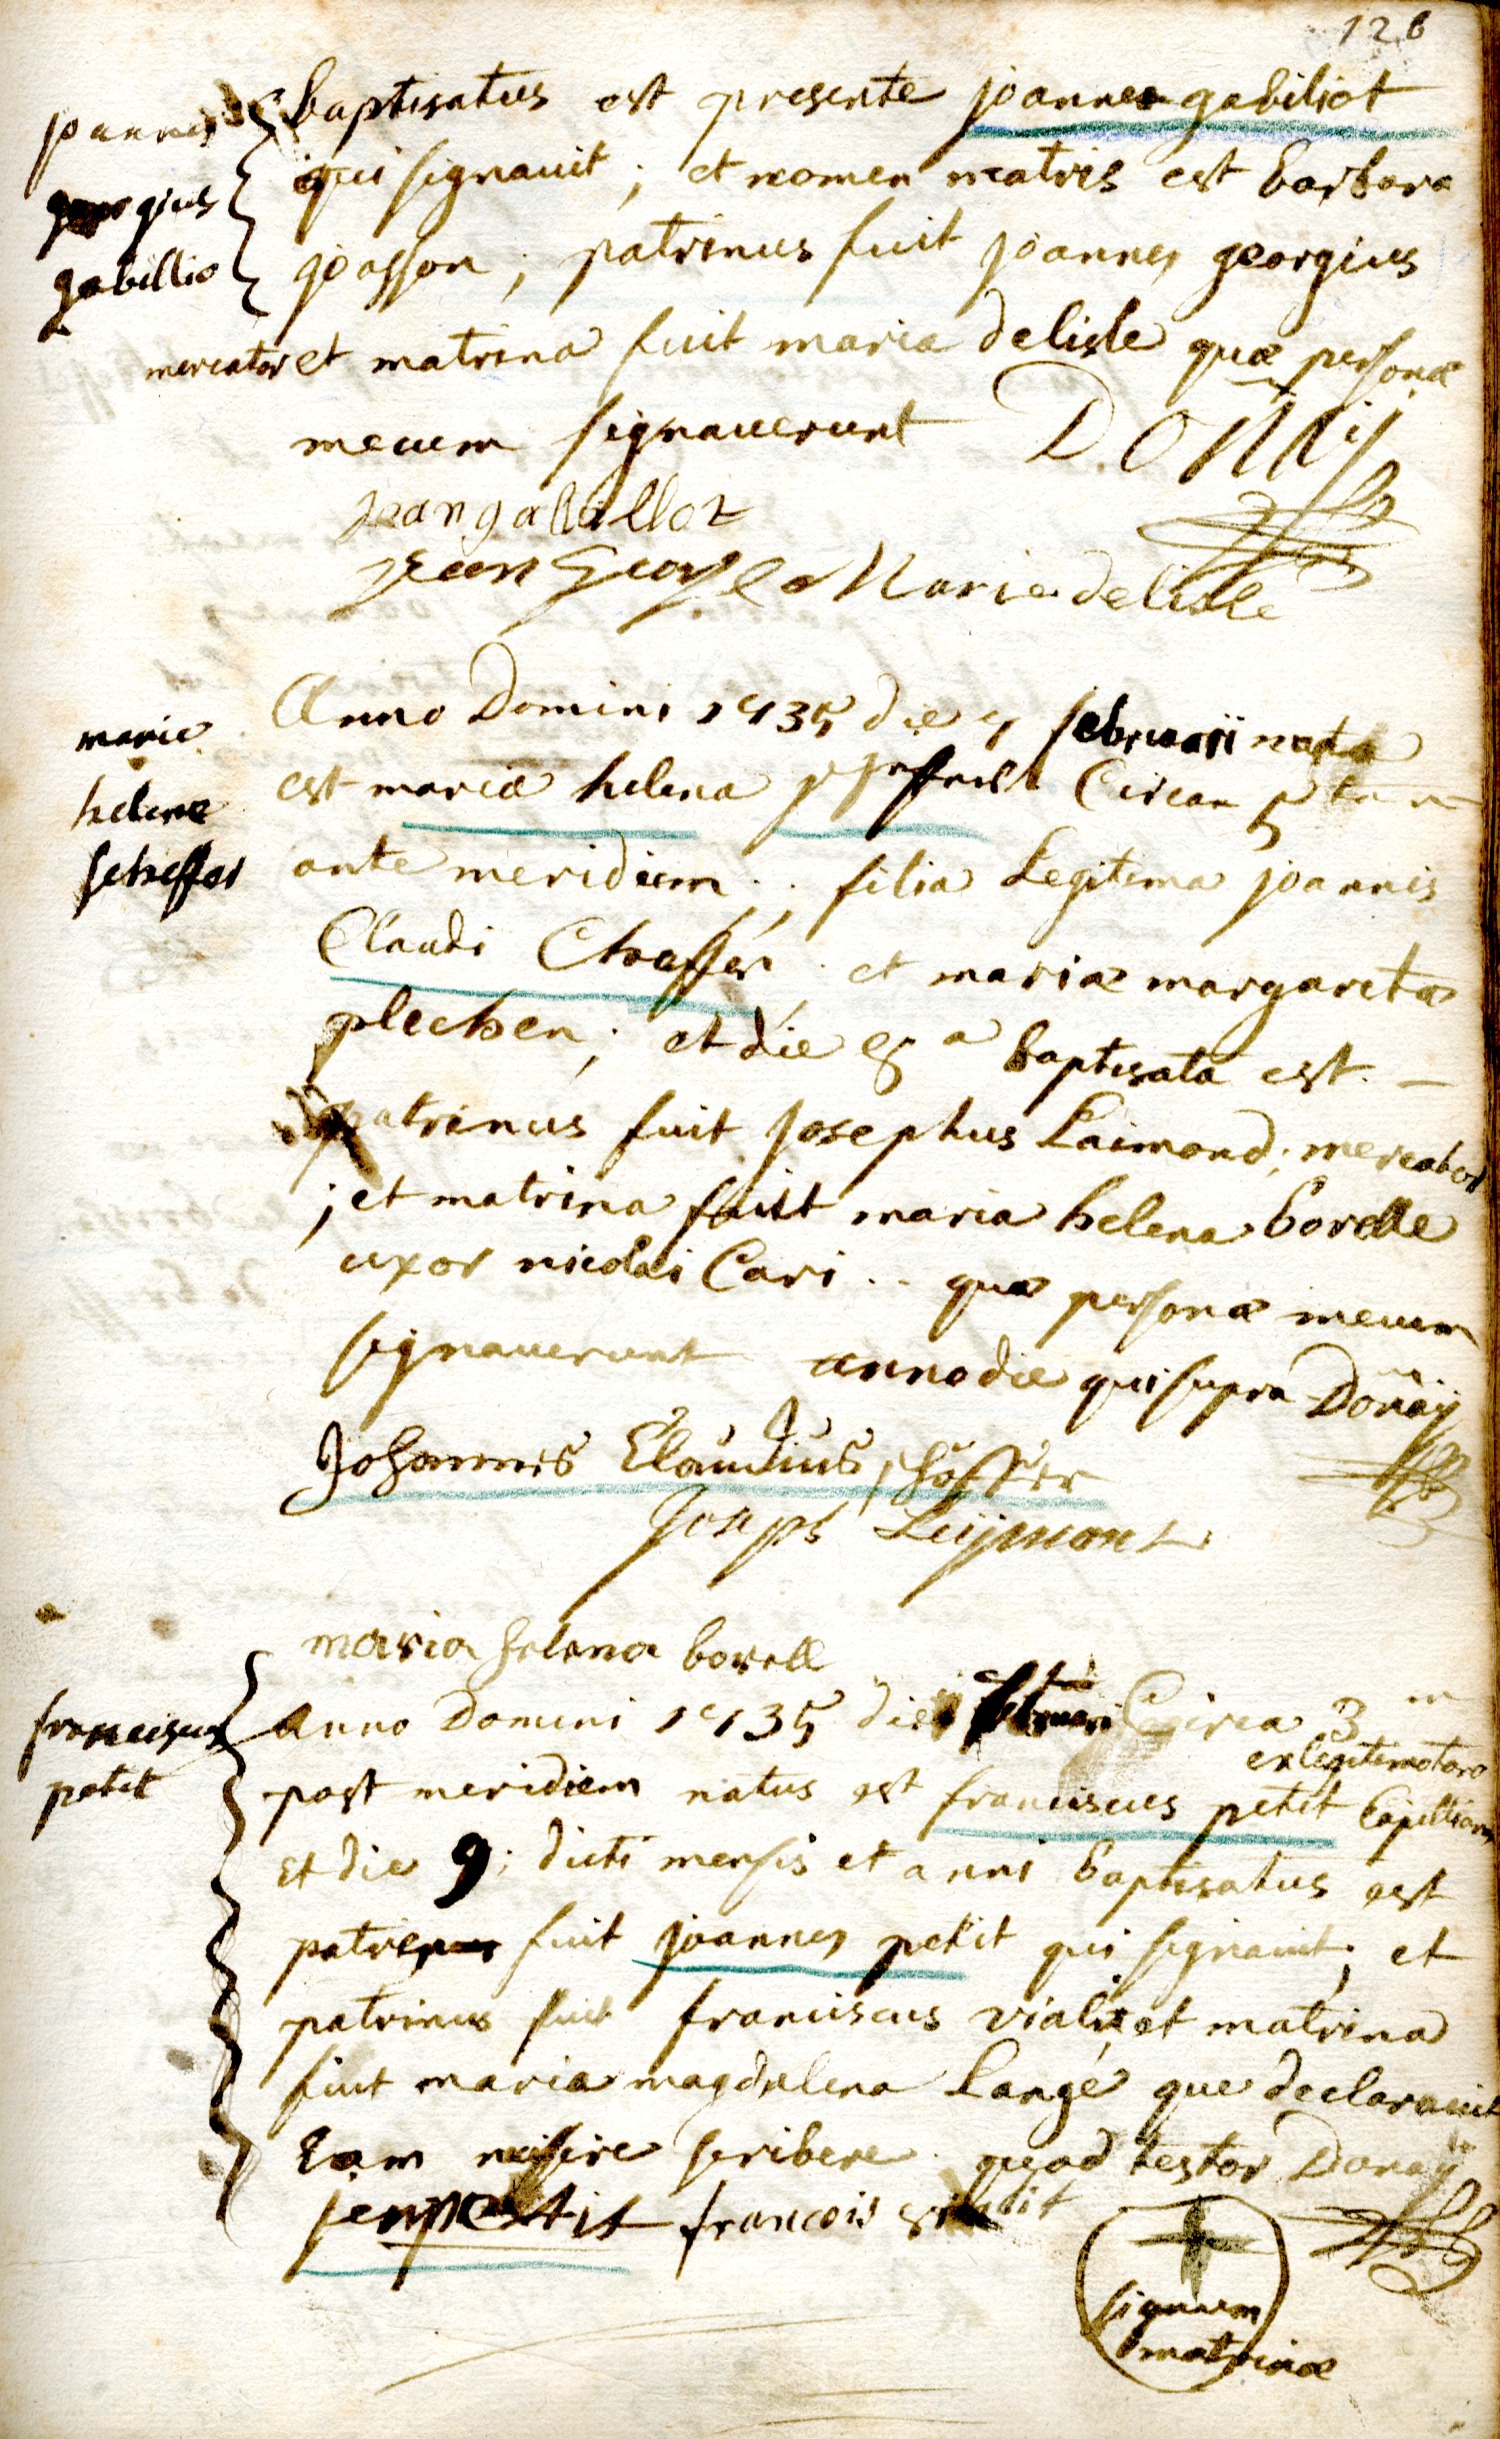 126
joannes
georgius
gabillio
baptisatus est presente joannes gabiliot
qui signauit ; et nomen matris est barbara
goasson ; patrinus fuit joannes georgius
mercator et matrina fuit maria delisle quæ personæ
mecum signauerunt Donay
jean gabillot
jean George Marie delisle
maria
helena
scheffer
Anno Domini 1735 die februarii nata
est maria helena Circa 5tam
ante meridiem ; filia Legitima joannis
Claudi Cheffer et mariæ margaretæ
plechen ; et die baptisata est. —
patrinus fuit josephus Laimond ; mercator
; et matrina fuit maria helena borelle
uxor nicolai Cari .. quæ personæ mecum
signauerunt anno die qui supra Donaÿ
Johannes Claudius schöffer
Joseph Leÿmont
maria helena borell
franciscus
petit
Anno Domini 1735 die februari Circa 3 m
ex legitimo toro
post meridiem natus est franciscus petit
Et die 9 ; dicti mensis et anni baptisatus est
fuit joannes petit qui signauit ; et
patrinus fuit franciscus vialit et matrina
fuit maria magdalena Langé que declarauit
Eam nescire scribere quod testor Donaÿ
jenpetit francois vialit
signum
matrinæ